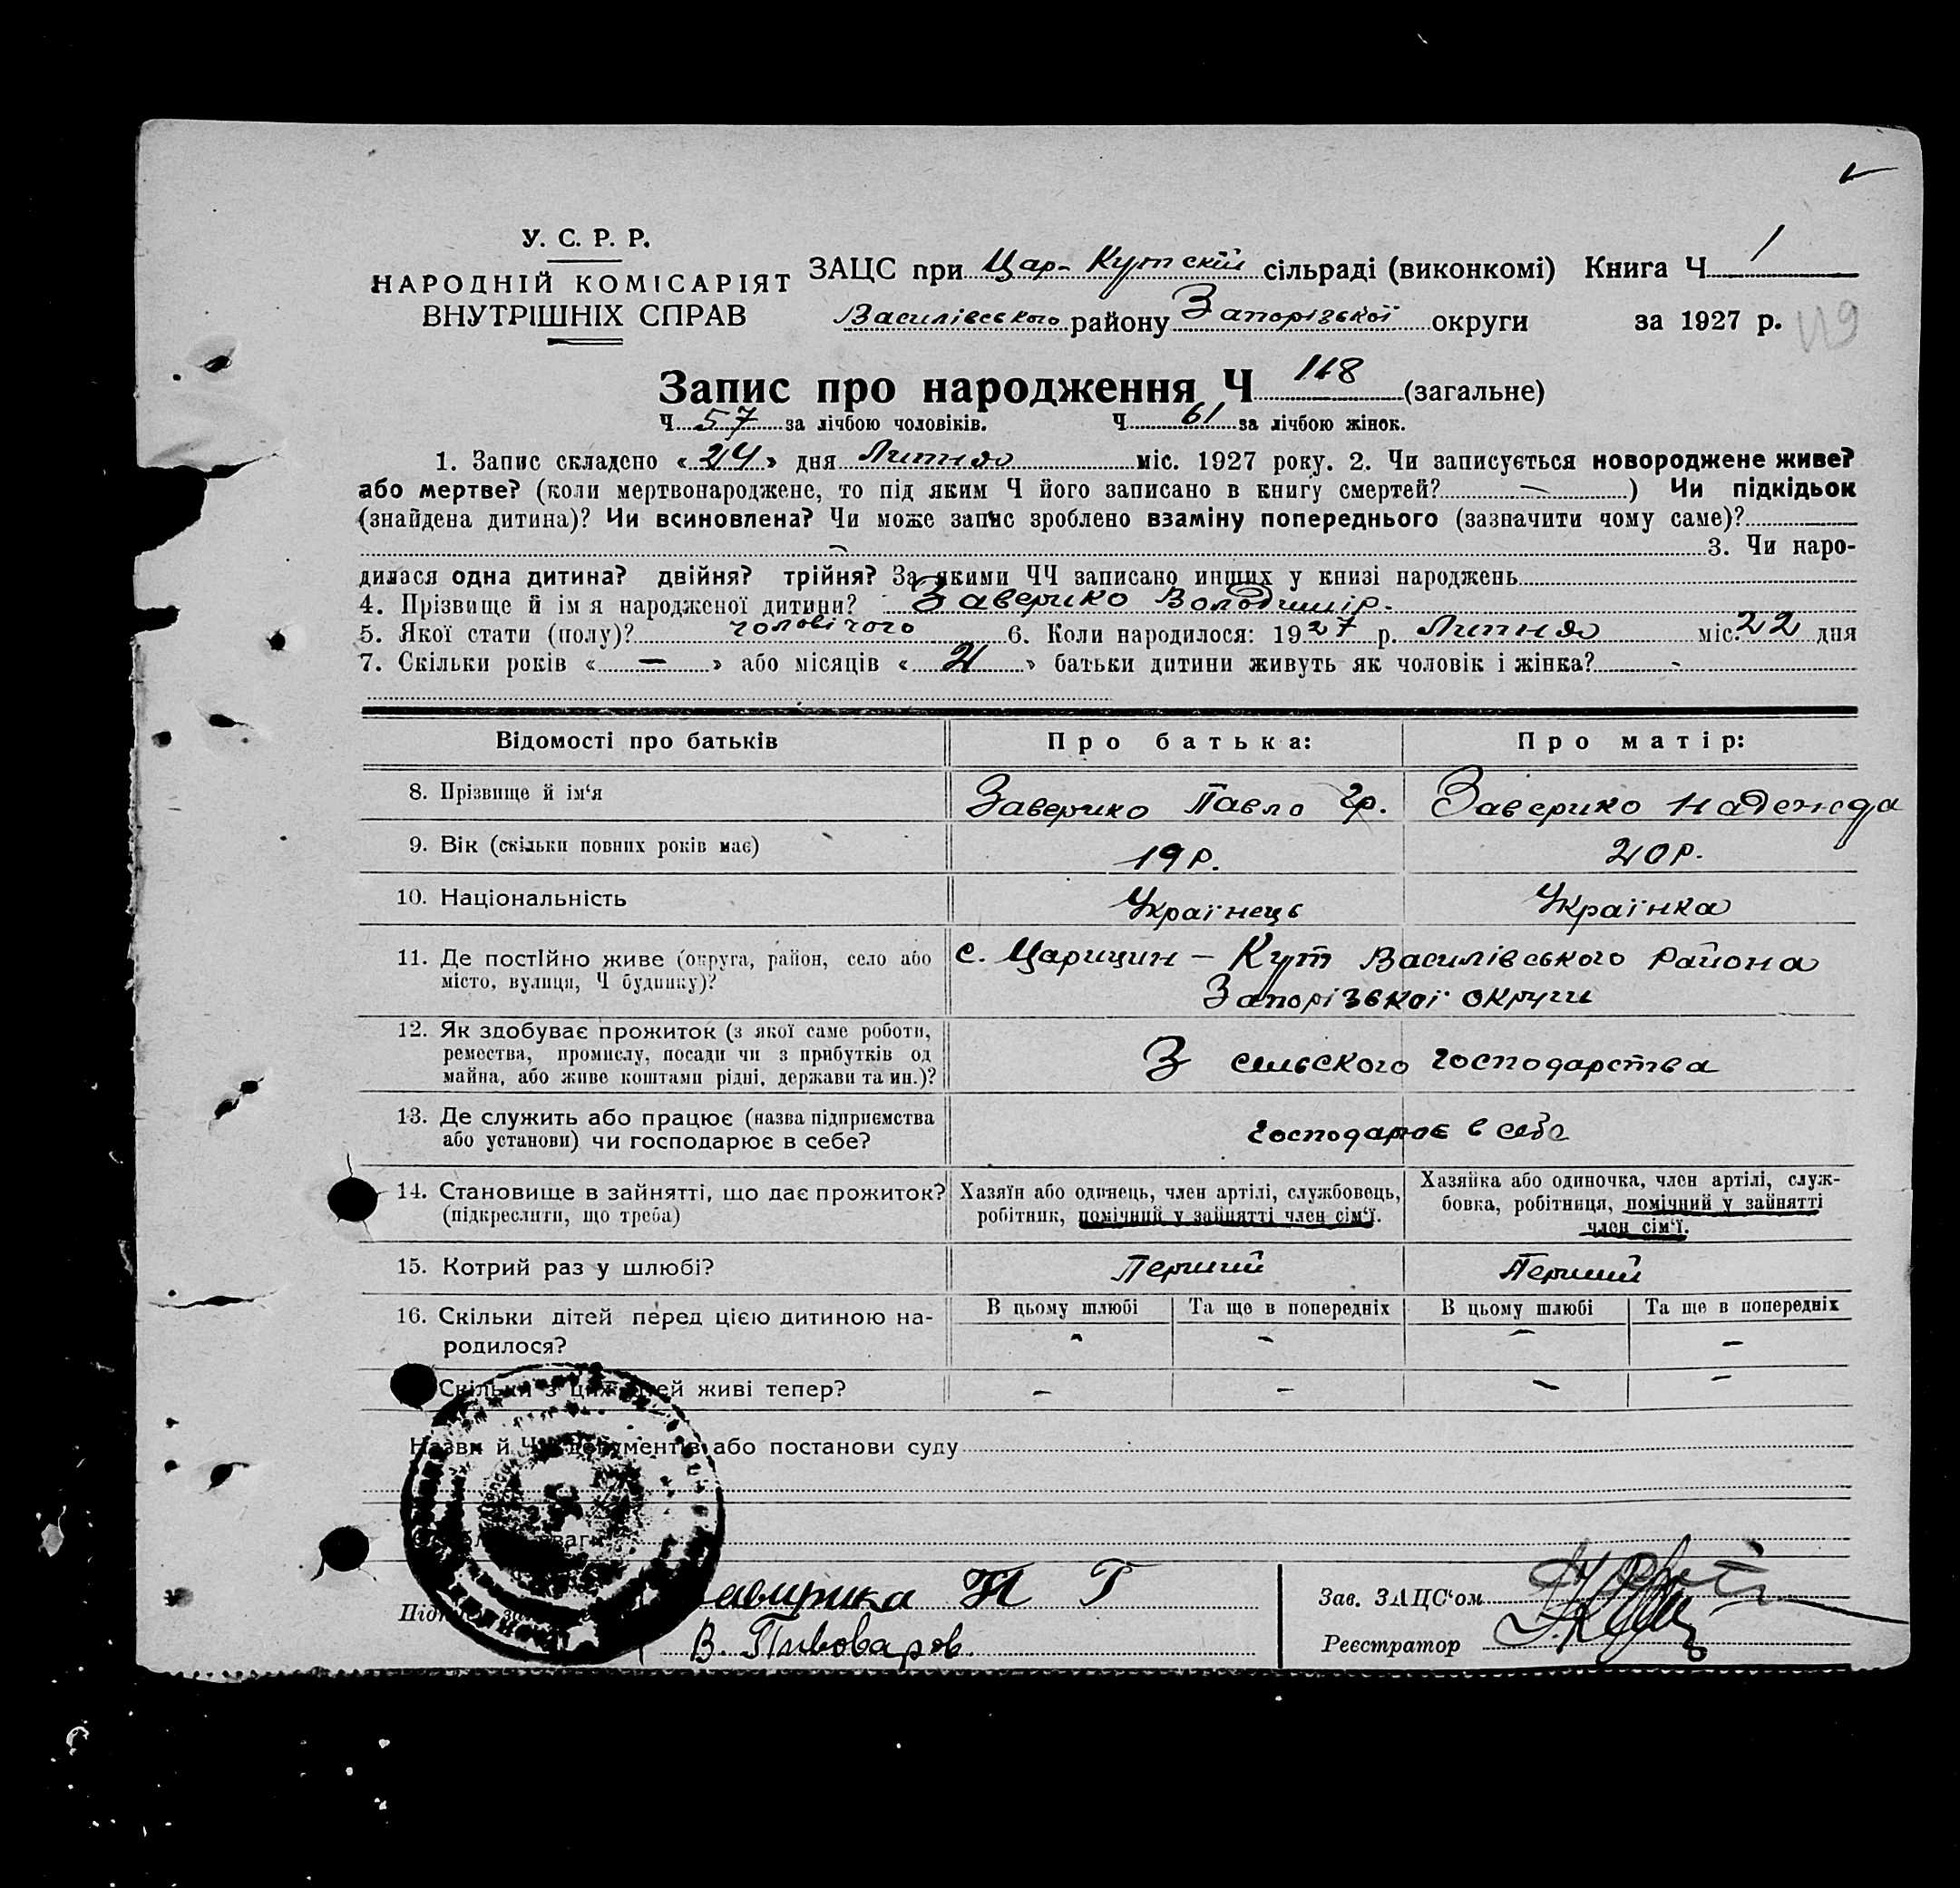 У. С. Р. Р.
НАРОДНІЙ КОМІСАРІЯТ
ВНУТРІШНІХ СПРАВ
ЗАЦС при Цар-Кутскій сільраді (виконкомі) Книга Ч 1
Василівського району Запорізької округи за 1927 р. 119
Запис про народження Ч 118 (загальне)
Ч 57 за лічбою чоловіків. Ч 61 за лічбою жінок.
1. Запис складено «24» дня Липня міс. 1927 року. 2. Чи записується новороджене живе?
або мертве? (коли мертвонароджене, то під яким Ч його записано в книгу смертей? —) Чи підкідьок
(знайдена дитина)? Чи всиновлена? Чи може запис зроблено взаміну попереднього (зазначити чому саме)?
— 3. Чи наро-
дилася одна дитина? двійня? трійня? За якими ЧЧ записано инших у книзі народжень
4. Прізвище й ім я народженої дитини? Заверико Володимір.
5. Якої стати (полу)? чоловічого 6. Коли народилося: 1927 р. Липня міс. 22 дня
7. Скільки років «—» або місяців «2» батьки дитини живуть як чоловік і жінка? -
Відомості про батьків Про батька: Про матір:
8. Прізвище й ім'я Заверико Павло Гр. Заверико Надежда
9. Вік (скільки повних років має) 19 р. 20 р.
10. Національність Українець Українка
11. Де постійно живе (округа, район, село або
місто, вулиця, Ч будинку)?
с. Царицин – Кут Василівського района
Запорізької округи
12. Як здобуває прожиток (з якої саме роботи,
ремества, промислу, посади чи з прибутків од
майна, або живе коштами рідні, держави та ин.)?
З сельского господарства
13. Де служить або працює (назва підприємства
або установи) чи господарює в себе?
господарює в себе
14. Становище в зайнятті, що дає прожиток?
(підкреслити, що треба)
Хазяїн або одинець, член артілі, службовець,
робітник, помічний у зайнятті член сім'ї.
Хазяйка або одиночка, член артілі, служ-
бовка, робітниця, помічний у зайнятті
член сім'ї.
15. Котрий раз у шлюбі? Перший Перший
16. Скільки дітей перед цією дитиною на-
родилося?
В цьому шлюбі Та ще в попередніх В цьому шлюбі Та ще в попередніх
- - - -
Скільки з цих дітей живі тепер? - - - -
Назви й ЧЧ документів або постанови суду
Зав. ЗАЦС'ом
Н Г
В. Пивоваров.
Реєстратор